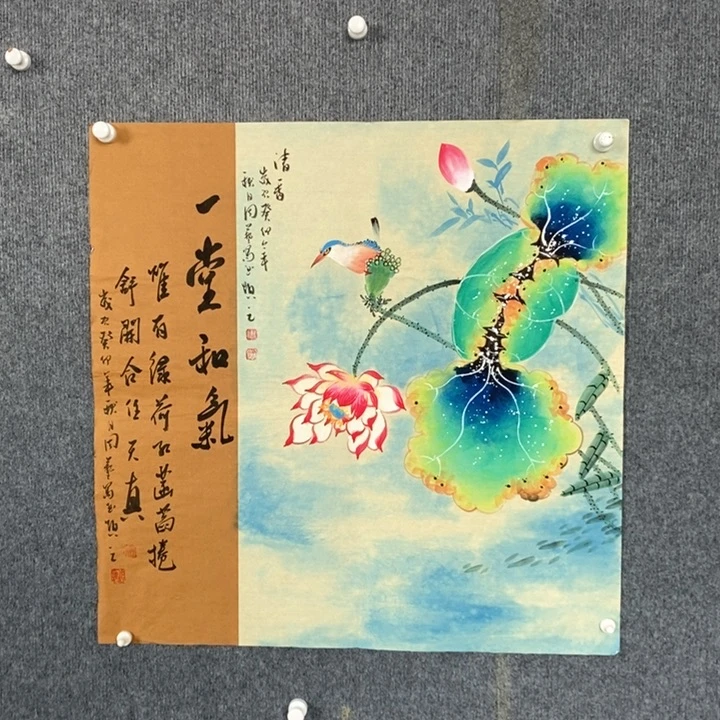 清香
歲次癸卯年
秋月周
一堂和氣
惟有綠荷紅菡萏捲
舒開合任天真
歲次癸卯年秋月周